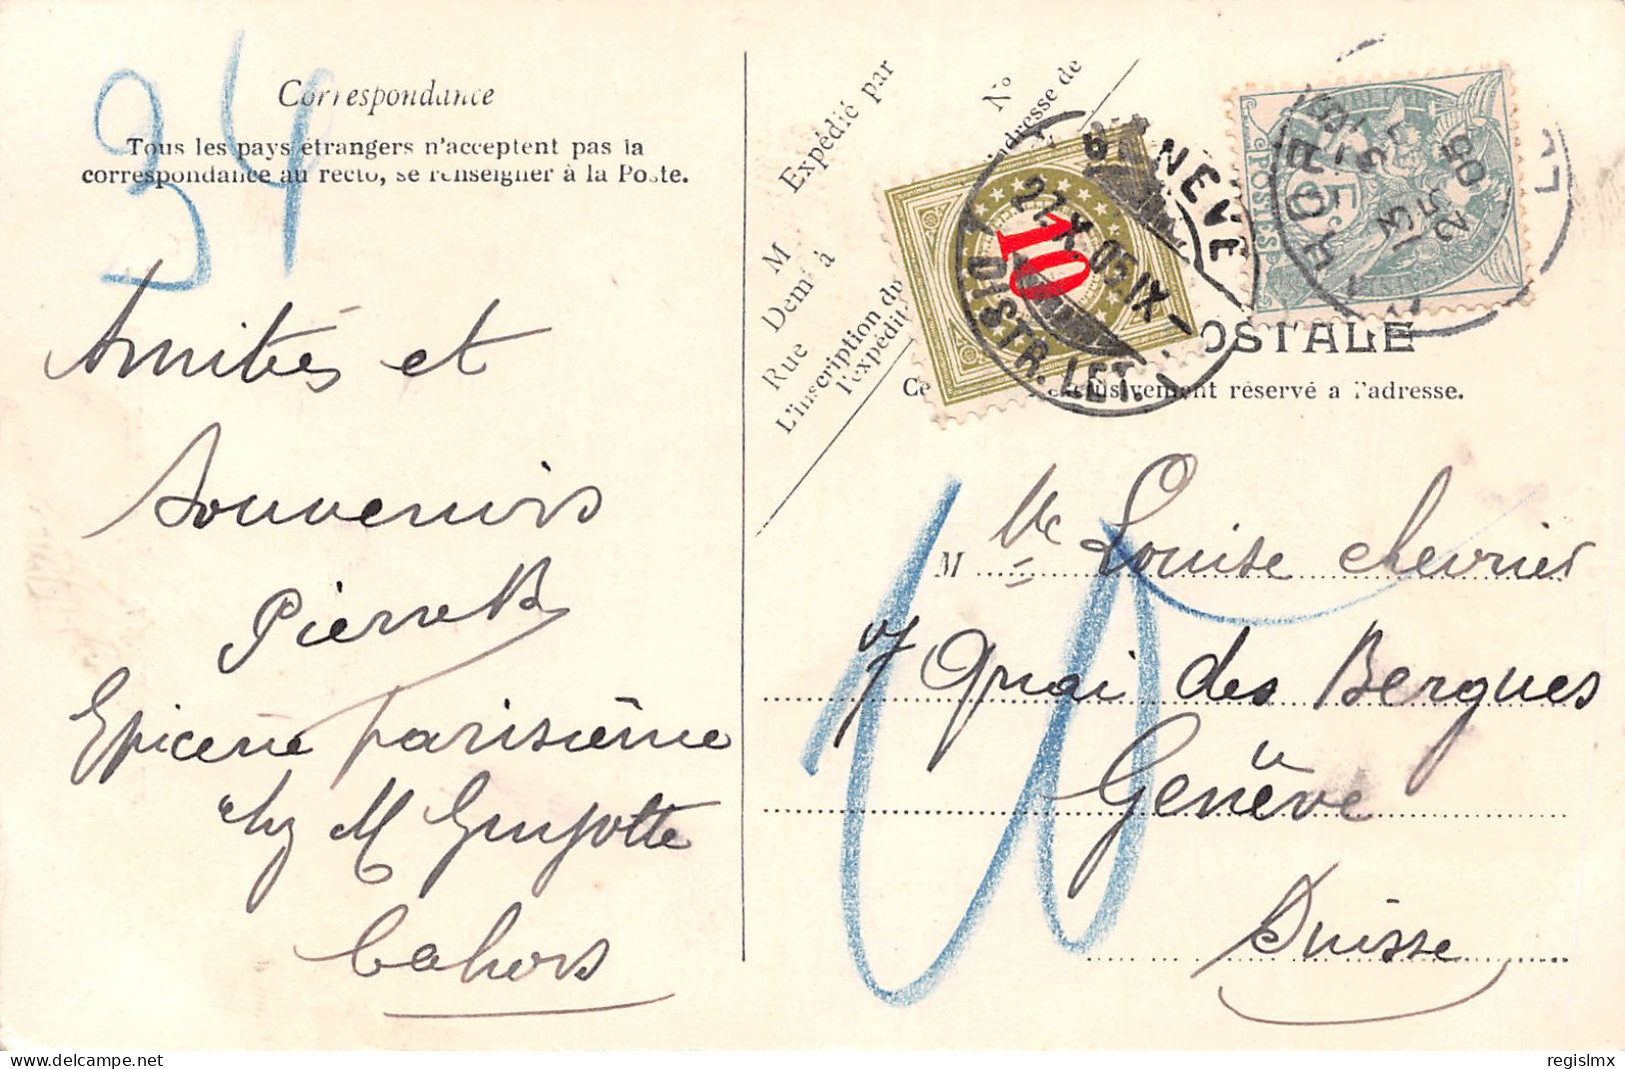 34
Correspondance
Tous les pays étrangers n'acceptent pas la
correspondance au recto, se renseigner à la Poste.
Amitiés et
Souvenirs
Pierre B
Epicerie parisienne
chez M Guyotte
Cahors
Expédié par
M
Demt à
Rue
No
adresse de
L'inscription du
l'expédit
10
GENÈVE
27.X.05.IX
DISTR. LET.
POSTES
5c
25
05
OSTALE
Ce exclusivement réservé a l'adresse.
M lle Louise Chevrier
7 Quai des Bergues
Genève
Suisse
10
delcampe.net
regislmx